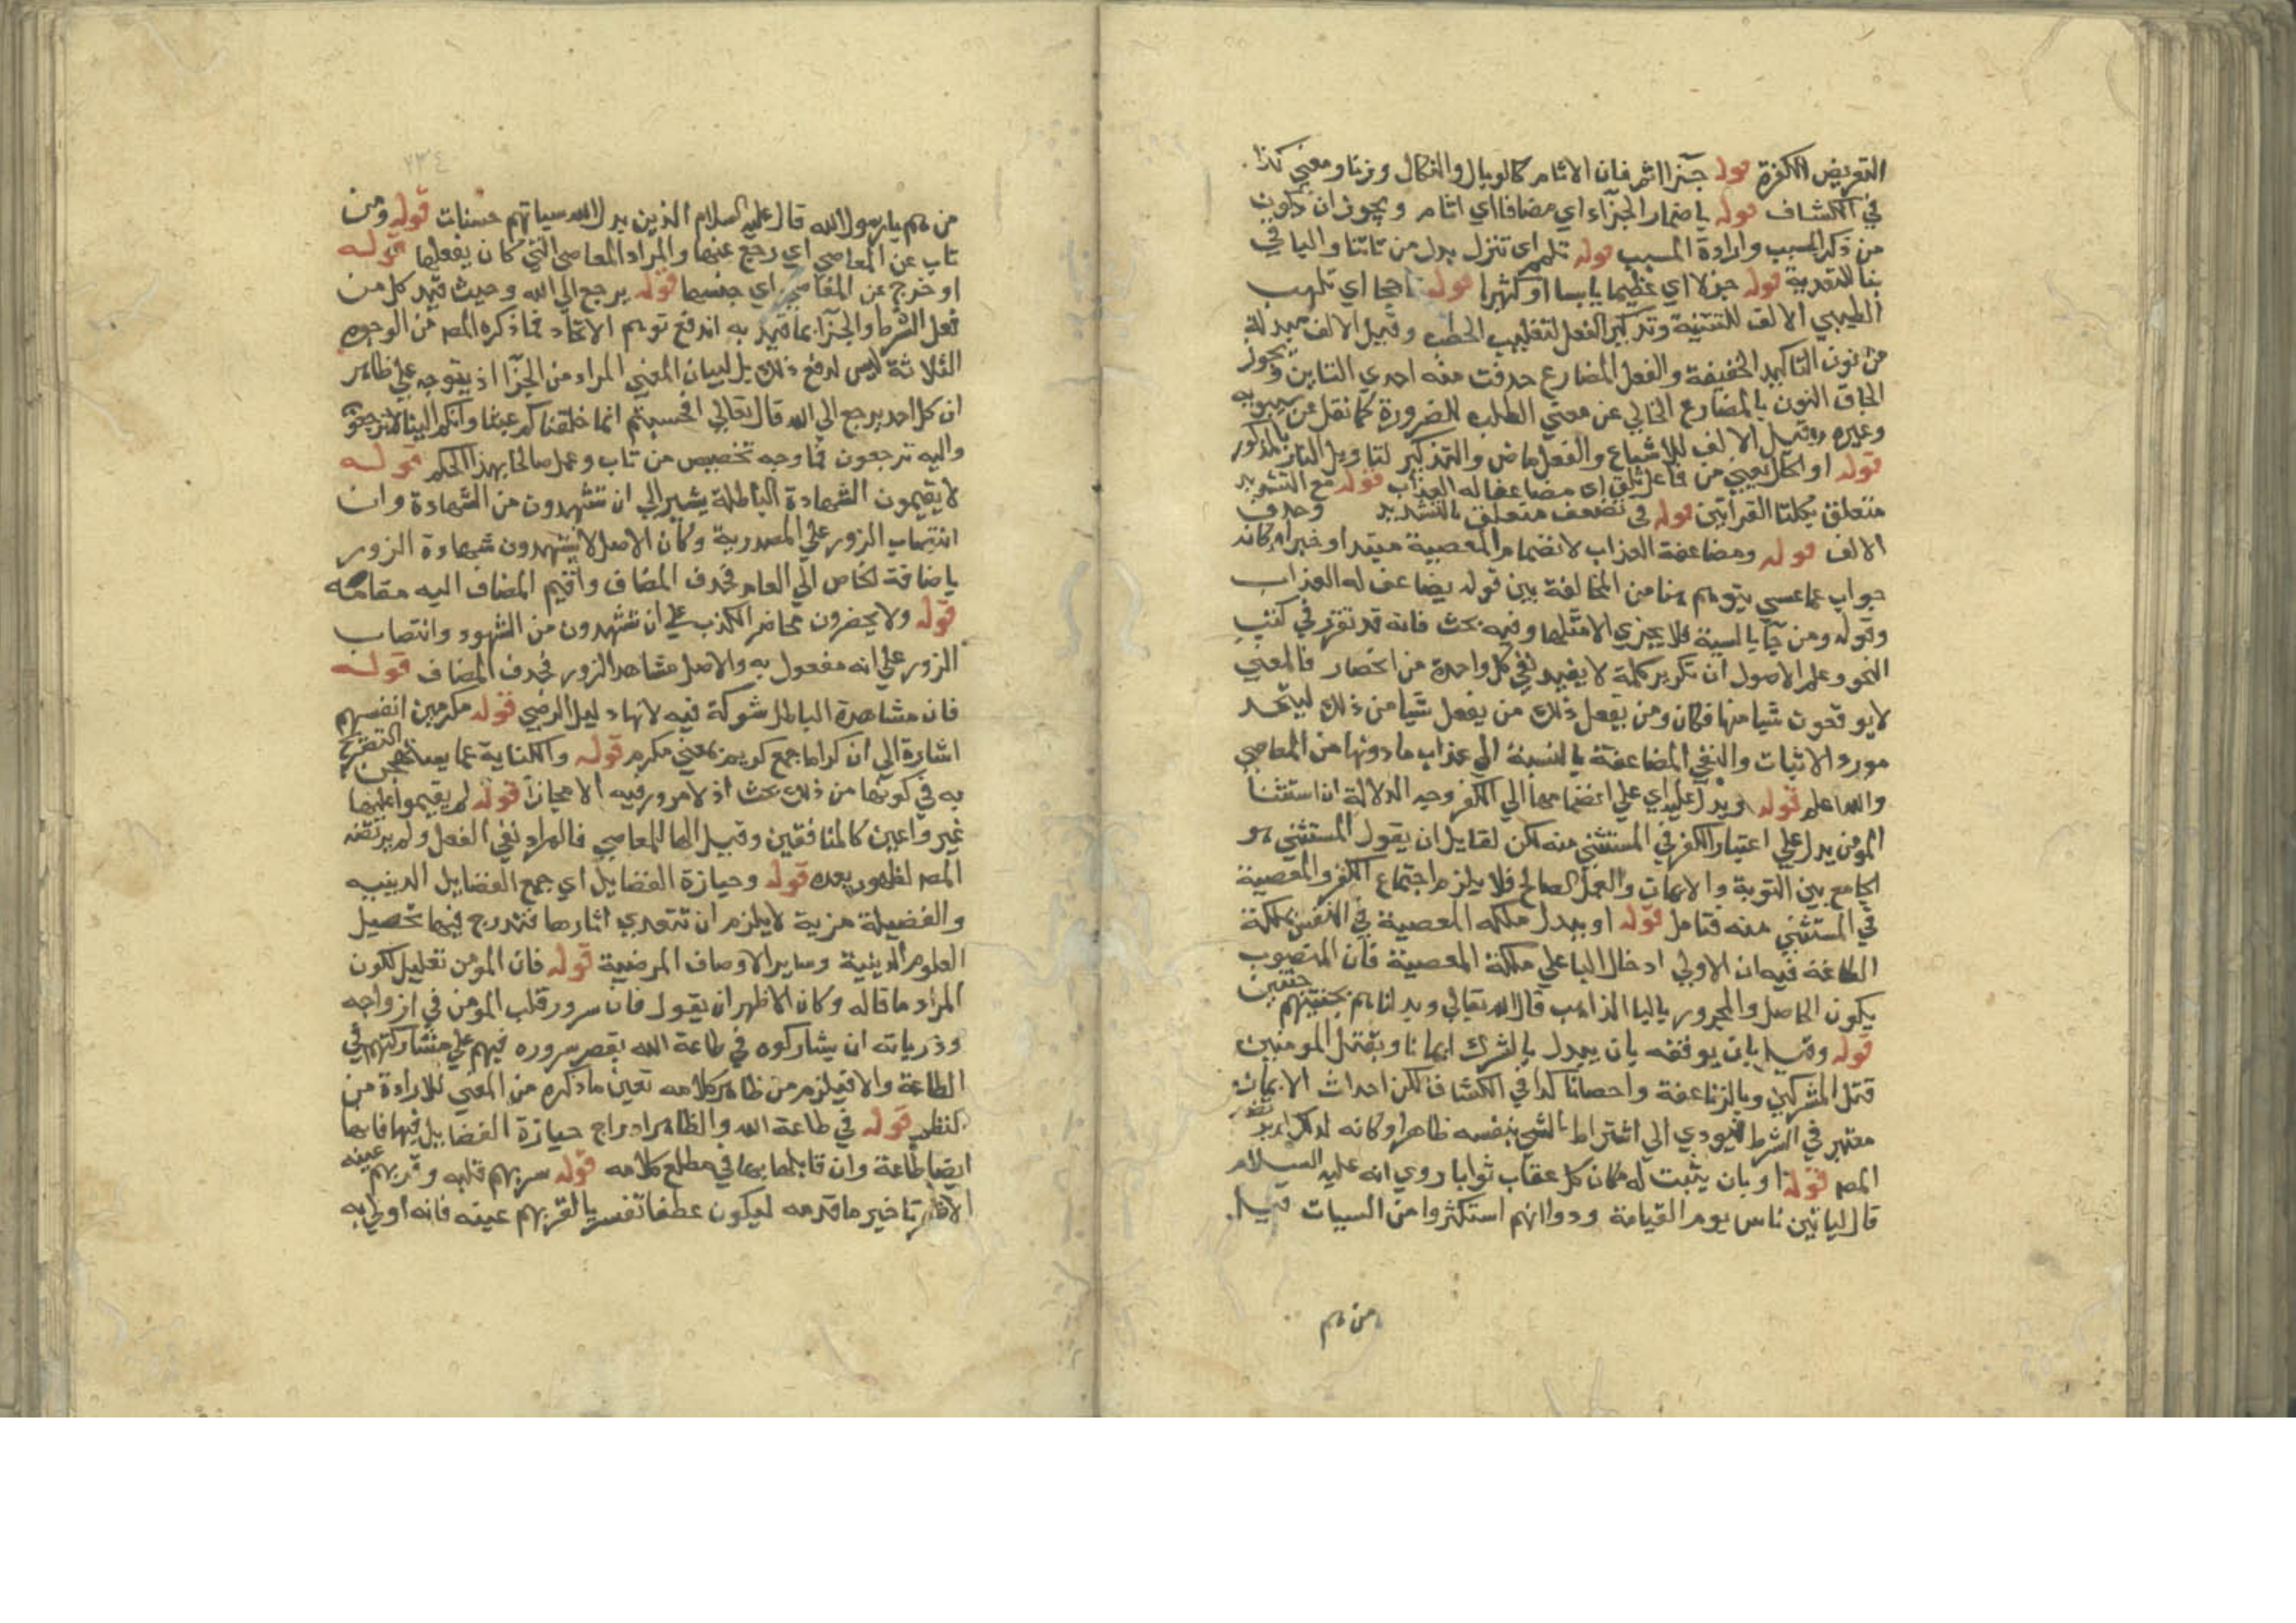 التعريض للكفرة قوله جزا اثم فان الاثام كالوبال والنكال وزنا ومعني كذا
في الكشاف قوله باضمار الجزاء اي مضافا اي اثام ويجوز ان يكون
من ذكر السبب وارادة المسبب قوله تلمم اي تنزل بدل من تاتنا واليا في
بنا للتعدية قوله جزلا اي عظيما يابسا او كثيرا قوله تاججا اي تلهب
الطيبي الالف للتثنية وتذكير الفعل لتغليب الحطب وقيل الالف مبدلة
من نون التاكيد الخفيفة والفعل المضارع حذفت منه احدي التاين ويجوز
الحاق النون بالمضارع الخالي عن معني الطلب للضرورة كما نقل عن سيبويه
وغيره وقيل الالف للاشباع والفعل ماض والتذكير لتاويل النار بالمذكور
قوله او الحال يعني من فاعل يلق اي مضاعفا له العذاب قوله مع التشديد
متعلق بكلتا القراتين قوله في تضعف متعلق بالتشديد وحذف
الالف قوله ومضاعفة العذاب لانضمام المعصية مبتدا وخبر له كانه
جواب عما عسي يتوهم هنا من المخالفة بين قوله يضاعف له العذاب
وقوله ومن جا بالسيئة فلا يجزي الا مثلها وفيه بحث فانه قد تقرر في كتب
النحو وعلم الاصول ان تكرير كلمة لا يفيد نفي كل واحدة من الخصال فالمعني
لا يوقعون شيا منها فكان ومن يفعل ذلك من يفعل شيا من ذلك ليتحد
مورد الاثبات والنفي المضاعفة بالنسبة الي عذاب ما دونها من المعاصي
والله اعلم قوله ويدل عليه اي علي انضمامها الي الكفر وجه الدلالة ان استثنا
المومن يدل علي اعتبار الكفر في المستثني منه لكن لقايل ان يقول المستثني هو
الجامع بين التوبة والايمان والعمل الصالح فلا يلزم اجتماع الكفر والمعصية
في المستثني منه فتامل قوله او يبدل ملكة المعصية في النفس بملكة
الطاعة فيه ان الاولي ادخال البا علي ملكة المعصية فان المنصوب
يكون الحاصل والمجرور باليا الذاهب قال الله تعالي وبدلناهم بجنتيهم جنتين
قوله وقيل بان يوفقه بان يبدل بالشرك ايمانا وبقتل المومنين
قتل المشركين وبالزنا عفة واحصانا كذا في الكشاف لكن احداث الايمان
معتبر في الشرط فيودي الي اشتراط الشي بنفسه ظاهرا وكانه لذلك لم يرتضه
المص قوله او بان يثبت له مكان كل عقاب ثوابا روي انه عليه السلام
قال لياتين ناس يوم القيامة ودوا انهم استكثروا من السيات قيل
من هم
٧٣٤
من هم يا رسول الله قال عليه السلام الذين يدل الله سياتهم حسنات قوله ومن
تاب عن المعاصي اي رجع عنها والمراد المعاصي التي كان يفعلها قوله
او خرج عن المعاصي اي جنسها قوله يرجع الي الله وحيث قيد كل من
فعل الشرط والجزا بما قيد به اندفع توهم الاتحاد فما ذكره المص من الوجوه
الثلاثة ليس لدفع ذلك بل لبيان المعني المراد من الجزا اذ يتوجه علي ظاهر
ان كل احد يرجع الي الله قال تعالي افحسبتم انما خلقناكم عبثا وانكم الينا لا ترجعون
واليه ترجعون فما وجه تخصيص من تاب وعمل صالحا بهذا الحكم قوله
لا يقيمون الشهادة الباطلة يشير الي ان تشهدون من الشهادة وان
انتصاب الزور علي المصدرية وكان الاصل لا يشهدون شهادة الزور
باضافة الخاص الي العام فحذف المضاف واقيم المضاف اليه مقامه
قوله ولا يحضرون محاضر الكذب علي ان تشهدون من الشهود وانتصاب
الزور علي انه مفعول به والاصل مشاهد الزور فحذف المضاف قوله
فان مشاهدة الباطل شركة فيه لانها دليل الرضي قوله مكرمين انفسهم
اشارة الي ان كراما جمع كريم بمعني مكرم قوله والكناية عما يستهجن التصريح
به في كونها من ذلك بحث اذ لا مرور فيه الا مجازا قوله لم يقيموا عليها
غير واعين كالمنافقين وقيل الها للمعاصي فالمراد نفي الفعل ولم يرتضه
المص لظهور بعده قوله وحيازة الفضايل اي جمع الفضايل الدينيه
والفضيلة مزية لا يلزم ان تتعدي اثارها فتندرج فيها تحصيل
العلوم الدينية وساير الاوصاف المرضية قوله فان المومن تعليل لكون
المراد ما قاله وكان الاظهر ان يقول فان سرور قلب المومن في ازواجه
وذرياته ان يشاركوه في طاعة الله بقصر سروره فيهم علي مشاركتهم في
الطاعة والا فيلزم من ظاهر كلامه تعين ما ذكره من المعني للارادة من
النظم قوله في طاعة الله والظاهر ادراج حيازة الفضايل فيها فانها
ايضا طاعة وان قابلها بها في مطلع كلامه قوله سر بهم قلبه وقر بهم عينه
الاظهر تاخير ما قدمه ليكون عطفا تفسيريا لقر بهم عينه فانه اولي به